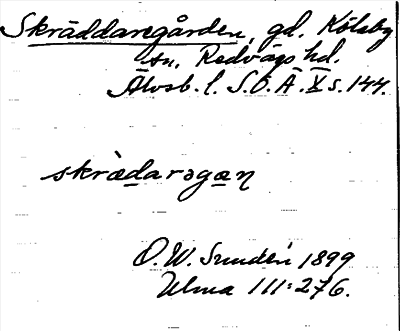 Skräddaregården, gd. Kölaby
sn, Redvägs hd.
Älvsb. l. S.O.Ä. X s. 144.
skrädaragan
O.W. Sundén 1899
Ulma 111:276.